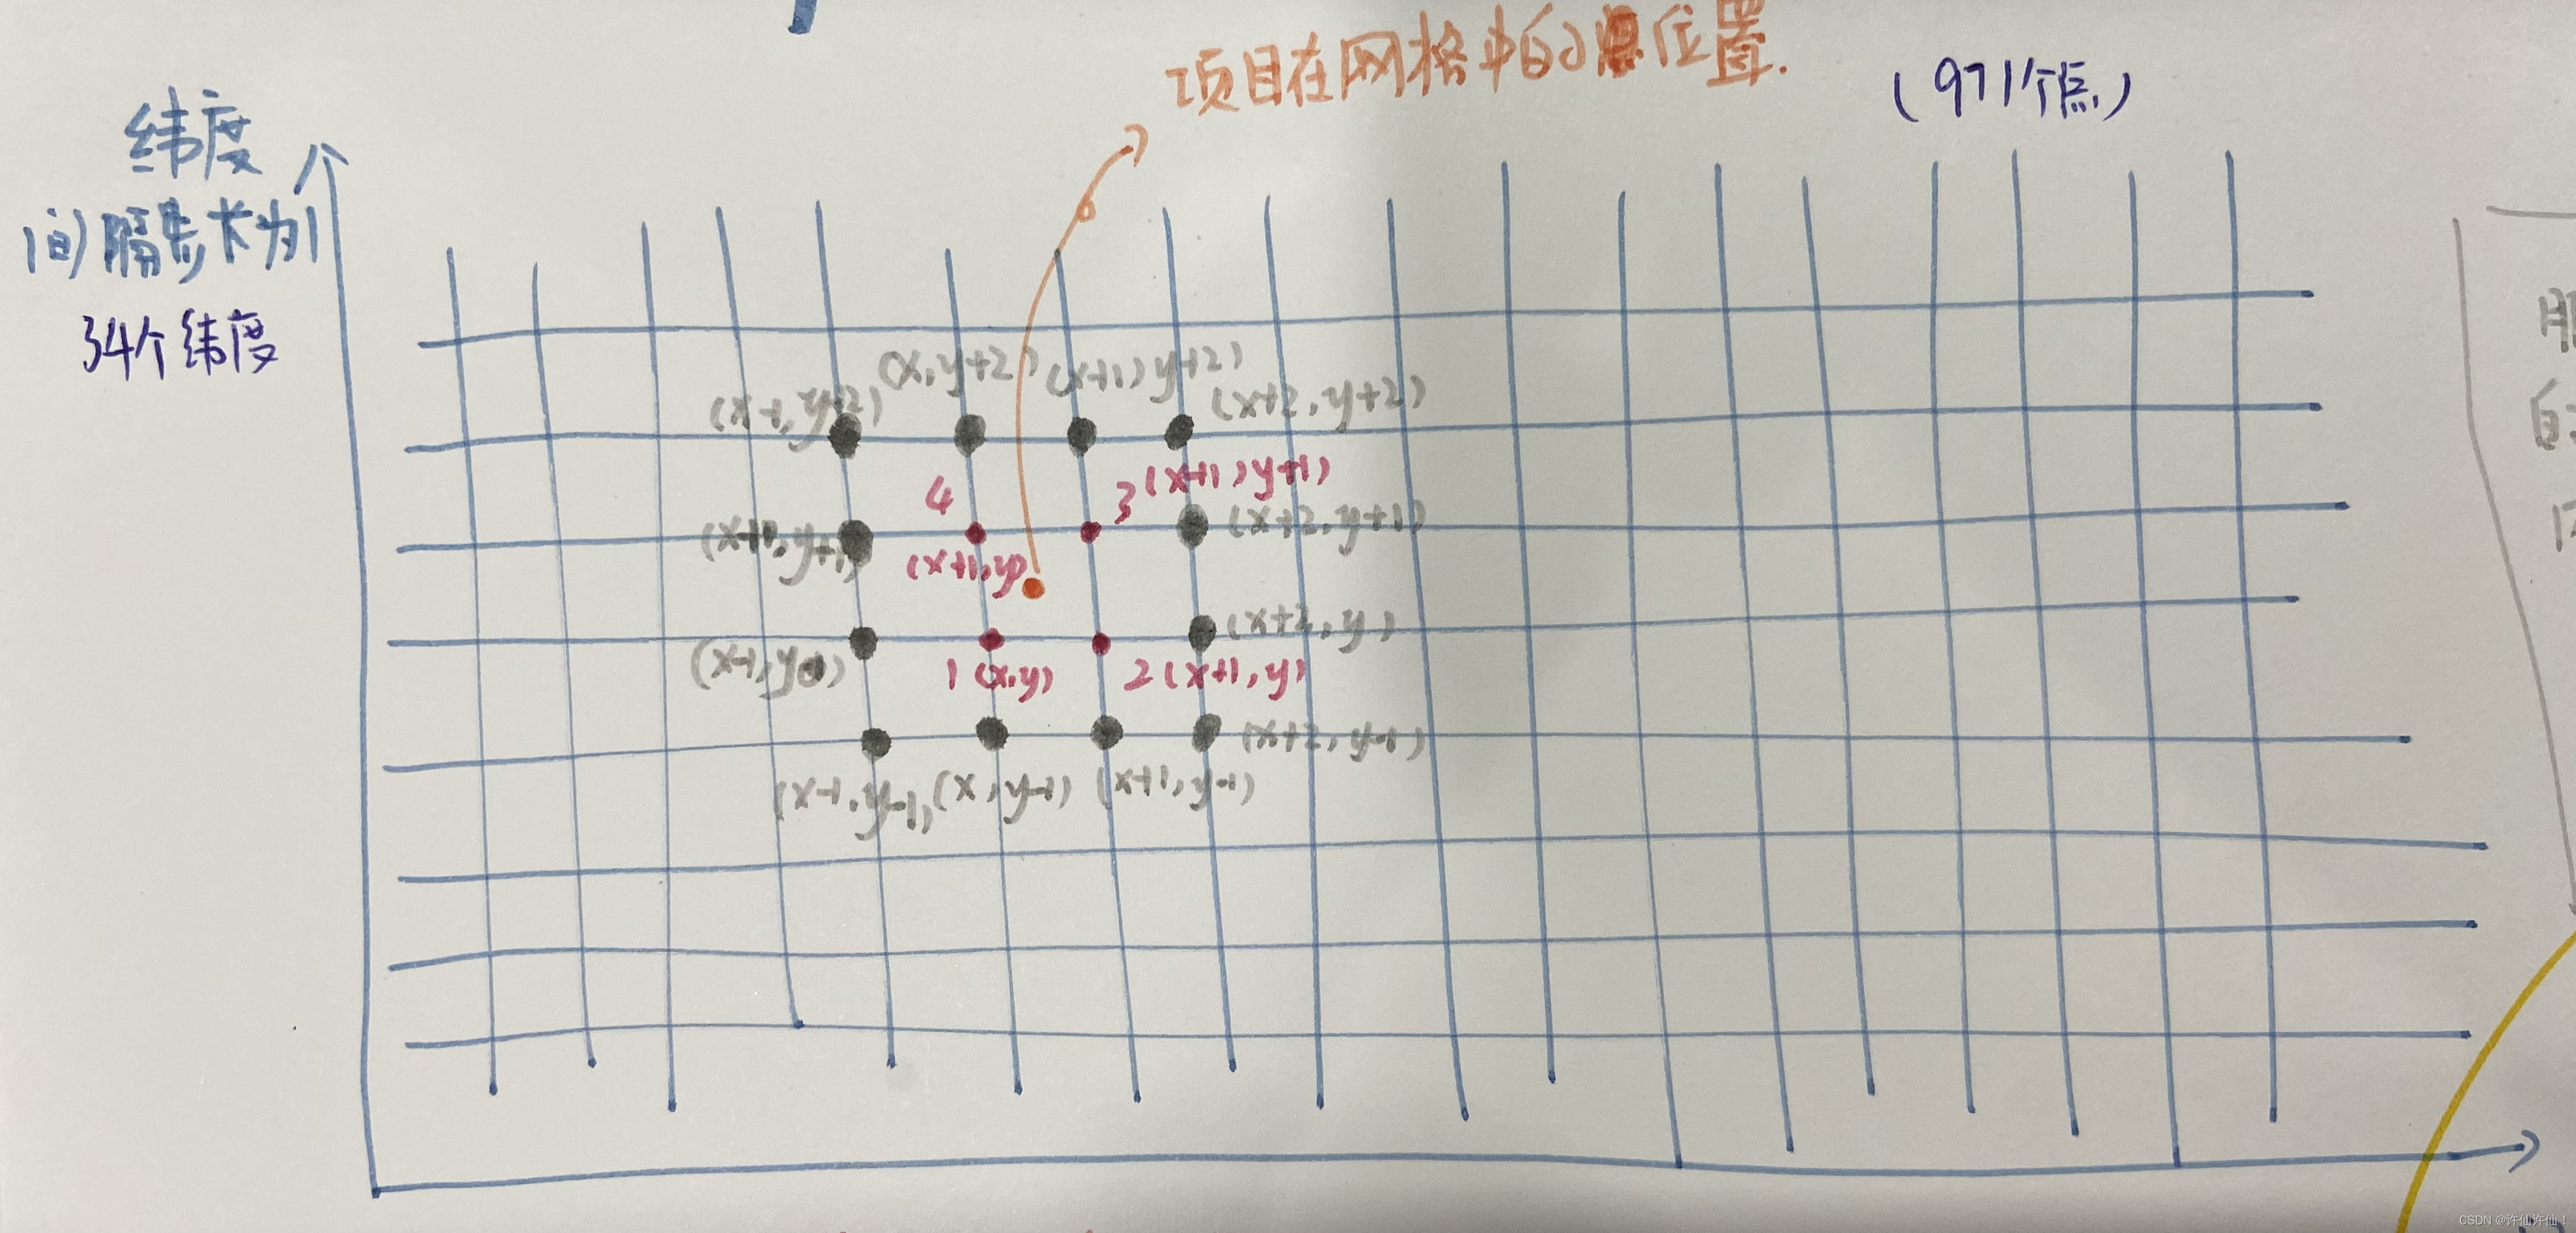 项目在网格中的位置.
(971个点)
纬度
间隔步长为1
34个纬度
(x,y+2)
(x+1,y+2)
(x-1,y+2)
(x+2,y+2)
4
3
(x+1,y+1)
(x+2,y+1)
(x+1,y)
(x+2,y)
1(x,y)
2(x+1,y)
(x+2,y-1)
(x-1,y-1)
(x,y-1)
(x+1,y-1)
CSDN @许仙许仙!